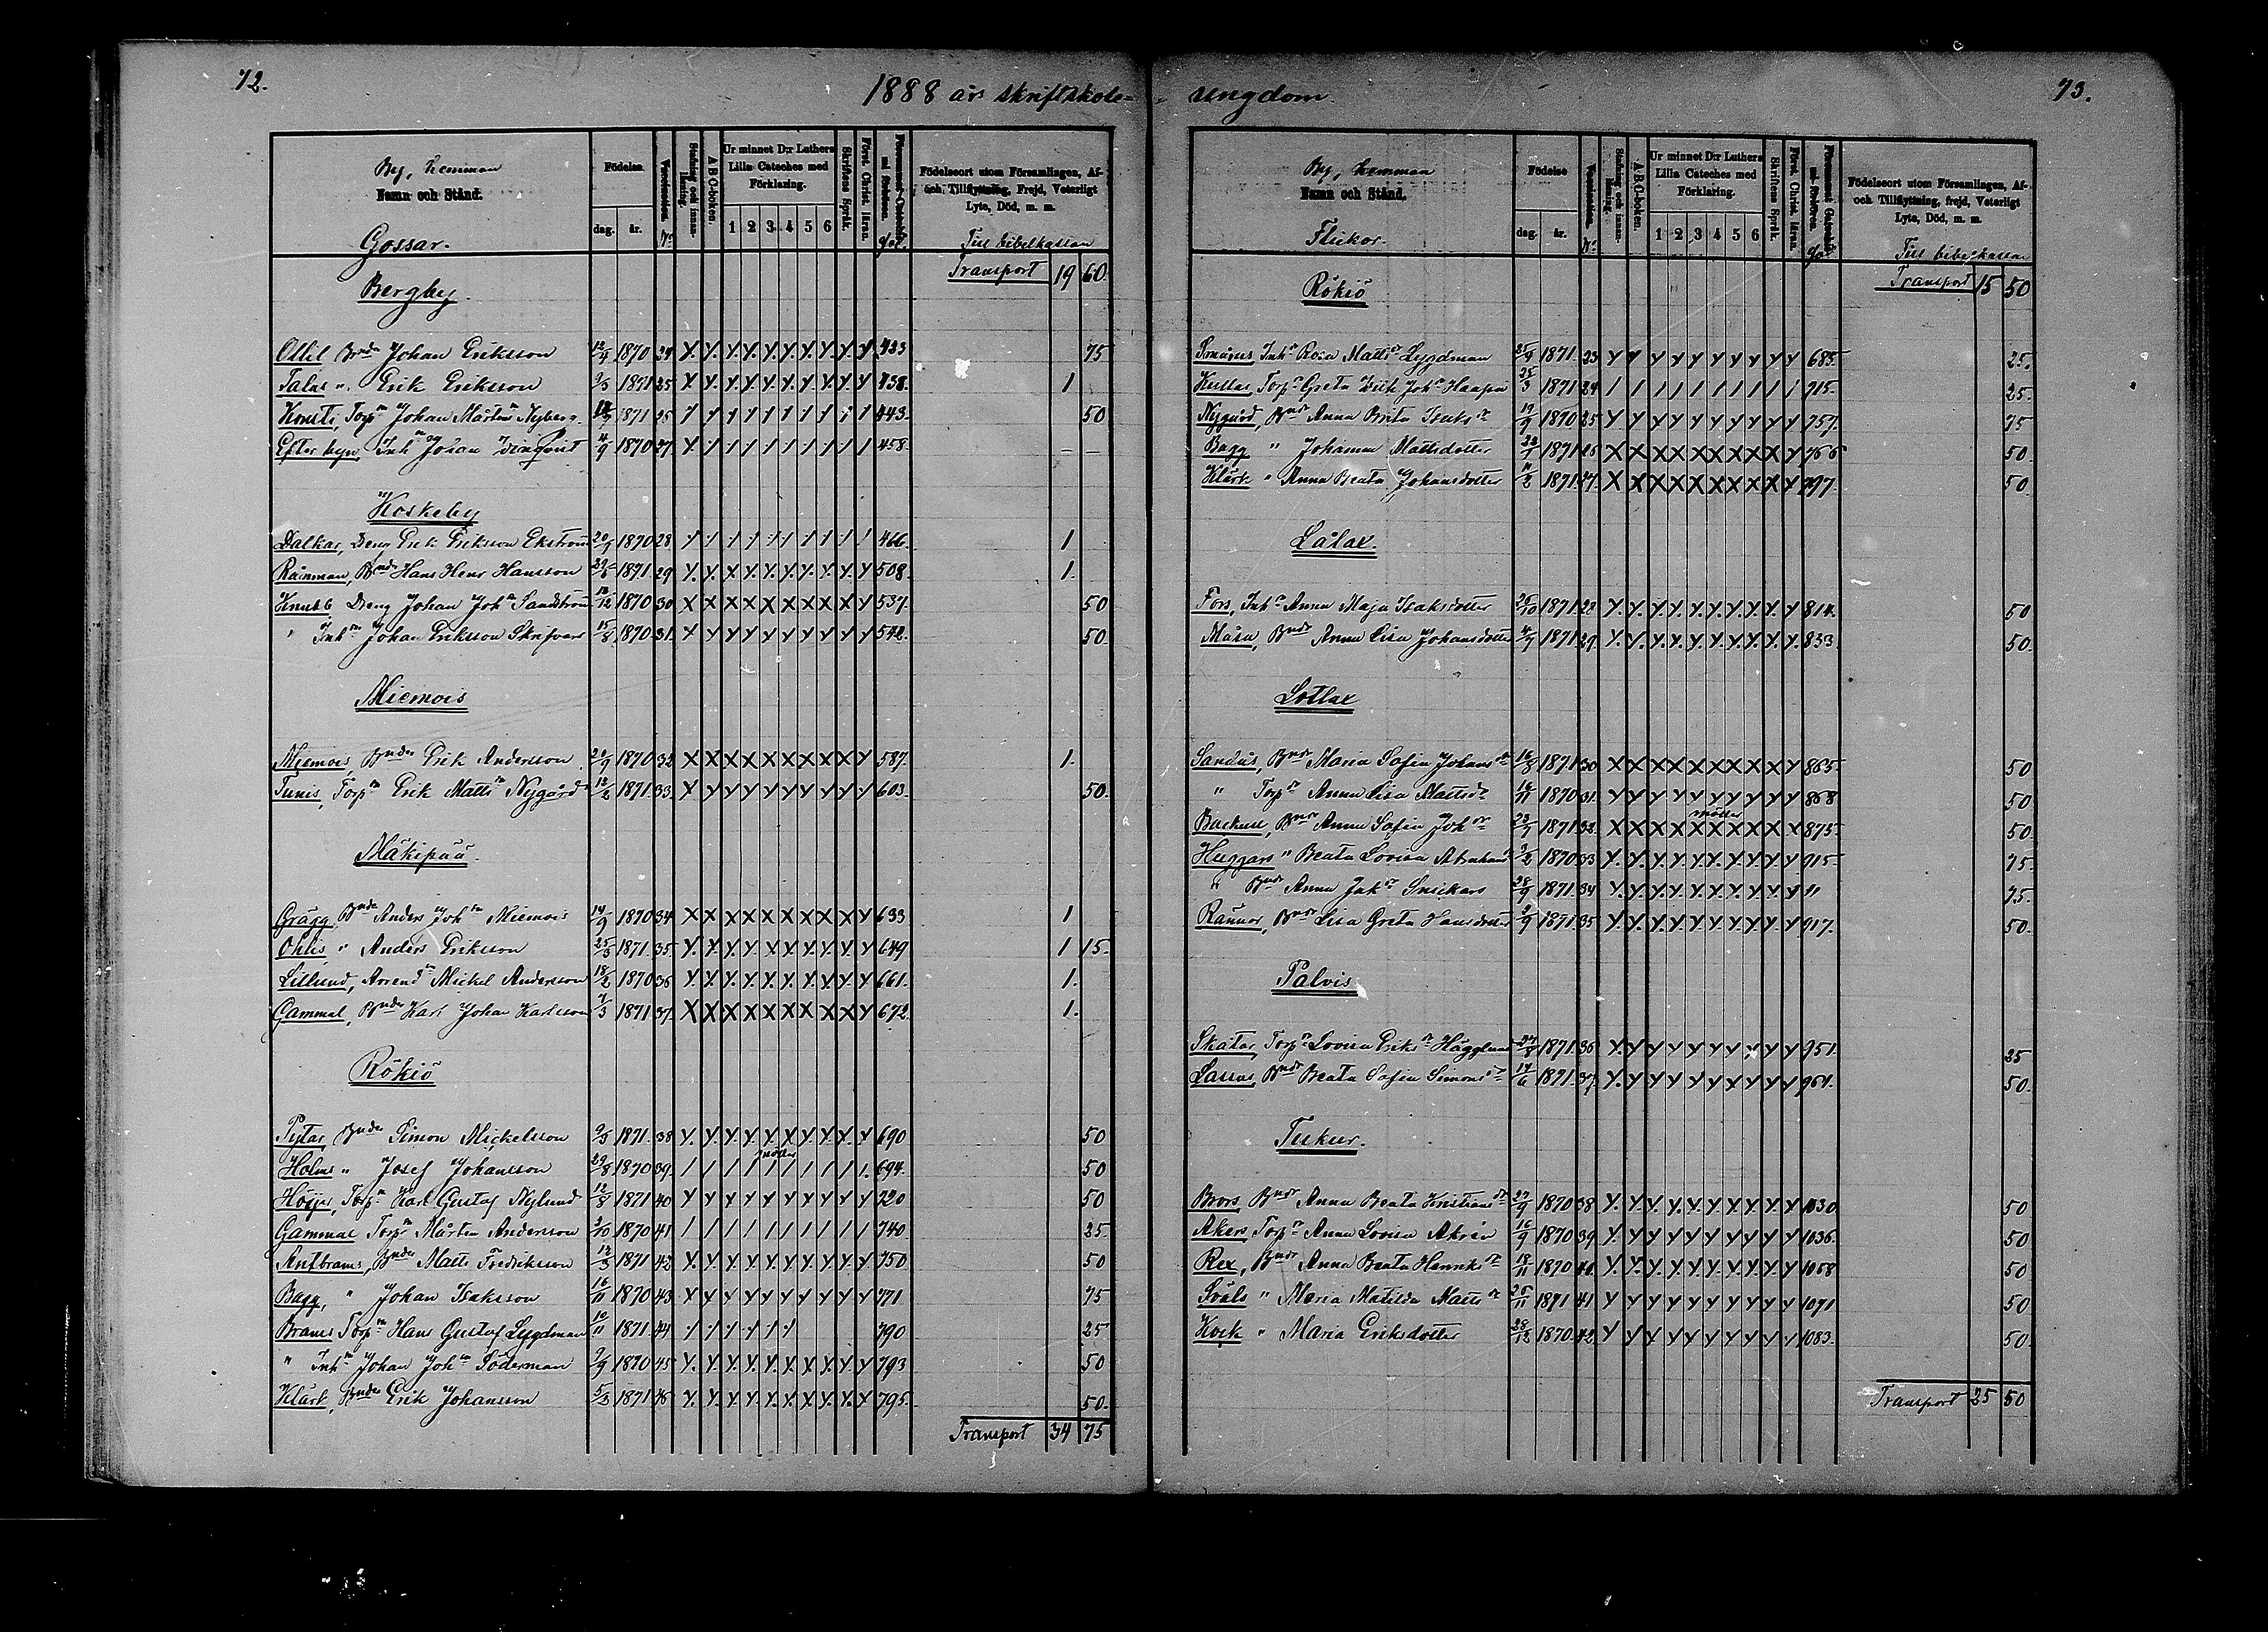 72.
1888 års skriftskole-
By, hemman
Namn och Stånd.
Gossar.
Födelse.
dag.
år.
Vaccination.
No
Stafning och innanläsning.
A B C-boken.
Ur minnet D:r Luthers
Lilla Cateches med
Förklaring.
1 2 3 4 5 6
Skriftens Språk.
Först. Christ. läran.
Födelseort utom Församlingen, Af-
och Tillflyttning, Frejd, Veterligt
Lyte, Död, m. m.
Till bibelkassan
Bergby. Transport 19 60.
Ollil Bnde Johan Eriksson 12/4 1870 24 Y. Y. Y. Y. Y. Y. Y. Y. Y. Y 423 75
Talus " Erik Eriksson 9/3 1871 25 Y. Y. Y. Y. Y. Y. Y. Y. Y. Y 438. 1
Konsti, Torp:n Johan Mårten:n Nyberg 1871 443. 50
Efterbyn Inh:n Johan 4/9 1870 27 458. – –
Koskeby
Dalkar, Dreng Erik Eriksson Ekström 20/9 1870 28 / / / / / / / / / / 466. 1
Rånman, Bnde Hans Henr Hansson 29/6 1871 29 Y. Y. X Y. Y. Y. Y. Y. Y. Y 508. 1.
Knubb Dreng Johan Joh:n Sandström 12/12 1870 30 X X X X X X X X X Y 537. 50
" Inh:n Johan Eriksson Skrifvars 15/8 1870 31. Y Y Y Y Y Y Y Y Y Y 542. 50.
Miemois
Miemois, Bnde Erik Andersson 20/9 1870 32 X X X X X X X X X Y 587. 1.
Tunis, Torp:n Erik Matts:n Nygård 12/2 1871 33. Y Y Y Y Y Y Y Y Y Y 603. 50.
Mäkipää.
Grägg Bnde Anders Joh:n Miemois 14/9 1870 34 X X X X X X X X X Y 633 1
Ohlis " Anders Eriksson 25/3 1871. 35 Y. Y. Y. Y. Y. Y. Y. Y. Y. Y 649 1 15.
Lillund, Arrend:n Mickel Andersson 18/2 1870 36 Y. Y. Y. Y. Y. Y. Y. Y. Y. Y 661. 1.
Gammal, Bnde Karl Johan Karlsson 7/3 1871 37. X X X X X X X X X Y 672. 1.
Rökiö
Pytar, Bnde Simon Mickelsson 9/3 1871. 38 Y. Y. Y. Y. Y. Y. Y. Y. Y. Y 690 50
möter
Holms " Josef Johansson 29/8 1870 39. / / / / / / / / / /. 694. 50
Höijer, Torp:n Karl Gustaf Nylund 12/8 1871 40 Y Y Y Y Y Y Y Y Y Y 720 50
Gammal Torp:r Mårten Andersson 3/10 1870 41 / / / / / / / / / / 740 25
Antbrams, Bnde Matts Fredriksson 12/3 1871 42 Y. Y. Y. Y. Y. Y. Y. Y. Y. Y 750 50
Bagg, " Johan Isaksson 16/11 1870 43 Y Y Y Y Y Y Y Y Y Y 771 75
Brams Torp:n Hans Gustaf Lygdman 10/11 1871 44 / / / / / / 790 25
" Inh:n Johan Joh:n Söderman 9/9 1870 45 Y. Y. Y. Y. Y. Y. Y. Y. Y. Y 793 50
Klärk, Bnde Erik Johansson 5/3 1871 46 Y. Y. Y. Y. Y. Y. Y. Y. Y. Y 795. 50.
Transport 34 75
ungdom. 73.
By, hemman
Namn och Stånd.
Flickor.
Födelse
dag.
år.
Vaccination.
No
Stafning och innanläsning.
A B C-boken.
Ur minnet D:r Luthers
Lilla Cateches med
Förklaring.
1 2 3 4 5 6
Skriftens Språk.
Först. Christ. läran.
Födelseort utom Församlingen, Af-
och Tillflyttning, frejd, Veterligt
Lyte, Död, m. m.
Till bibelkassan
Rökiö Transport 15 50
Inh:r Rosa Matts:dr Lygdman 25/9 1871. 23 Y Y Y Y Y Y Y Y Y Y 685. 25.
Kustas, Torp:r Greta 25/3 1871 24 / / / / / / / / / / 715. 25.
Nygård, Bndr Anna Brita Isaks:dr 19/9 1870 25 Y Y Y Y Y Y Y Y Y Y 757. 75
Bagg " Johanna Mattsdotter 22/1 1871 26 X X X X X X X X X Y 766 50.
Klärk " Anna Beata Johansdotter 11/2 1871 27. X X X X X X X X X Y 797. 50.
Lålax.
Fors, Inh:r Anna Maja Isaksdotter 25/10 1871 28 Y. Y. Y. Y. Y. Y. Y. Y. Y. Y 814. 50
Måsa, Bndr Anna Lisa Johansdotter 4/9 1871 29. Y. Y. Y. Y. Y. Y. Y. Y. Y. Y 833. 50.
Lotlax
Sandås, Bndr Maria Sofia Johans:dr 16/3 1871 30 X X X X X X X X X Y 865. 50
" Torp:r Anna Lisa Matts:dr 16/11 1870 31. Y Y Y Y Y Y Y Y Y Y 868 50
möter
Backull, Bndr Anna Sofia Joh:dr 23/7 1871 32. X X X X X X X X X X 875. 50.
Huggars " Beata Lovisa Abraham:dr 9/2 1870 33 Y. Y. Y. Y. Y. Y. Y. Y. Y. Y 915. 75.
" Bndr Anna Jak:dr Snickars 28/9 1871. 34 Y. Y. Y. Y. Y. Y. Y. Y. Y. Y " 75.
Rannar, Bndr Lisa Greta Hansdotter 9/9 1871. 35 Y. Y. Y. Y. Y. Y. Y. Y. Y. Y 917. 50.
Palvis
Skatar, Torp:r Lovisa Eriks:dr Hägglund 1871. 36 Y. Y Y Y Y Y Y Y Y Y 951. 25
Lassus, Bndr Beata Sofia Simons:dr 14/6 1871. 37. Y. Y Y Y Y Y Y Y Y Y 961. 50.
Tuckur.
Brors, Bndr Anna Beata Kristians:dr 27/9 1870 38 Y. Y. Y. Y. Y. Y. Y. Y. Y. Y 1030. 50
Akers, Torp:r Anna Lovisa Akrén 16/9 1870 39 Y. Y Y Y Y Y Y Y Y Y 1036. 50
Rex, Bndr Anna Beata Henriks:dr 18/11 1870 40. Y. Y. Y. Y. Y. Y. Y. Y. Y. Y 1058 50
" Maria Matilda Matts:dr 25/11 1871 41 Y Y Y Y Y Y Y Y Y Y 1071 50
Kock " Maria Eriksdotter 28/12 1870 42. Y Y Y Y Y Y Y Y Y Y 1083. 50.
Transport 25 50